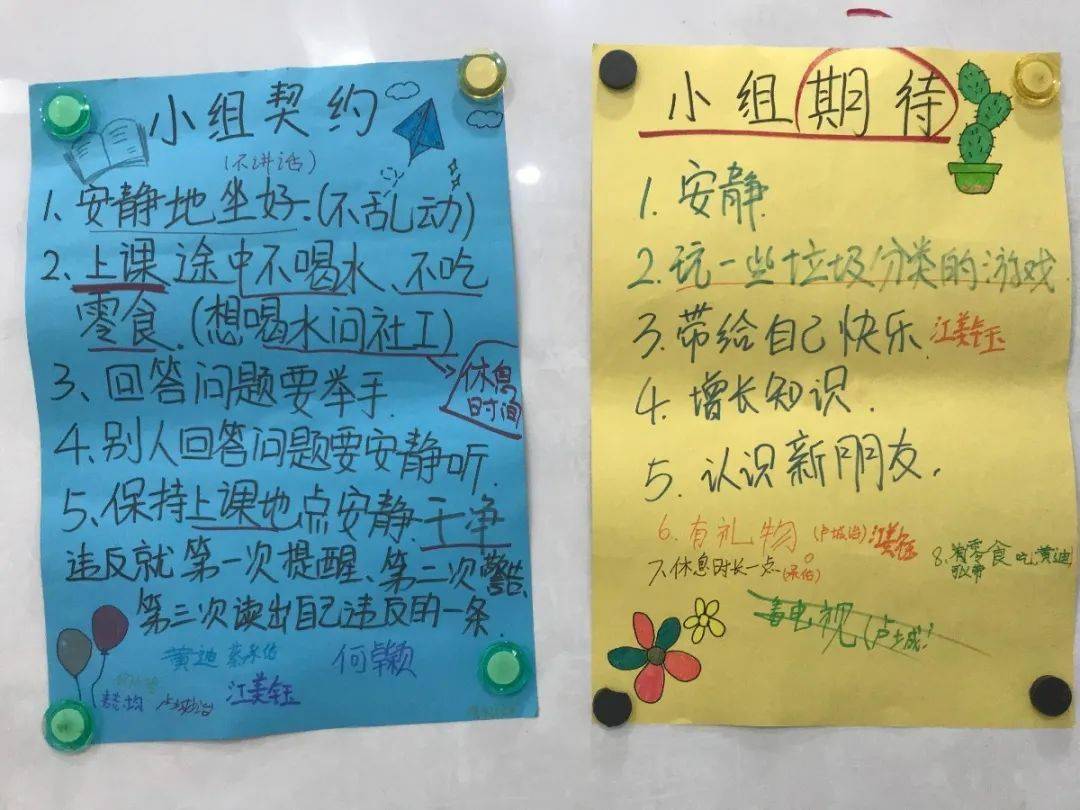 小组契约
(不讲话)
1、安静地坐好.(不乱动)
2、上课途中不喝水、不吃
零食.(想喝水问社工)
休息
时间
3、回答问题要举手.
4、别人回答问题要安静听
5、保持上课地点安静.干净
违反就第一次提醒、第二次警告、
第三次读出自己违反的一条.
黄迪
何颖
江美钰
小组期待
1.安静.
2.玩一些垃圾分类的游戏.
3.带给自己快乐.江美钰
4.增长知识.
5.认识新朋友.
6.有礼物 江美钰
7.休息时长一点
8.零食吃 黄迪
看电视